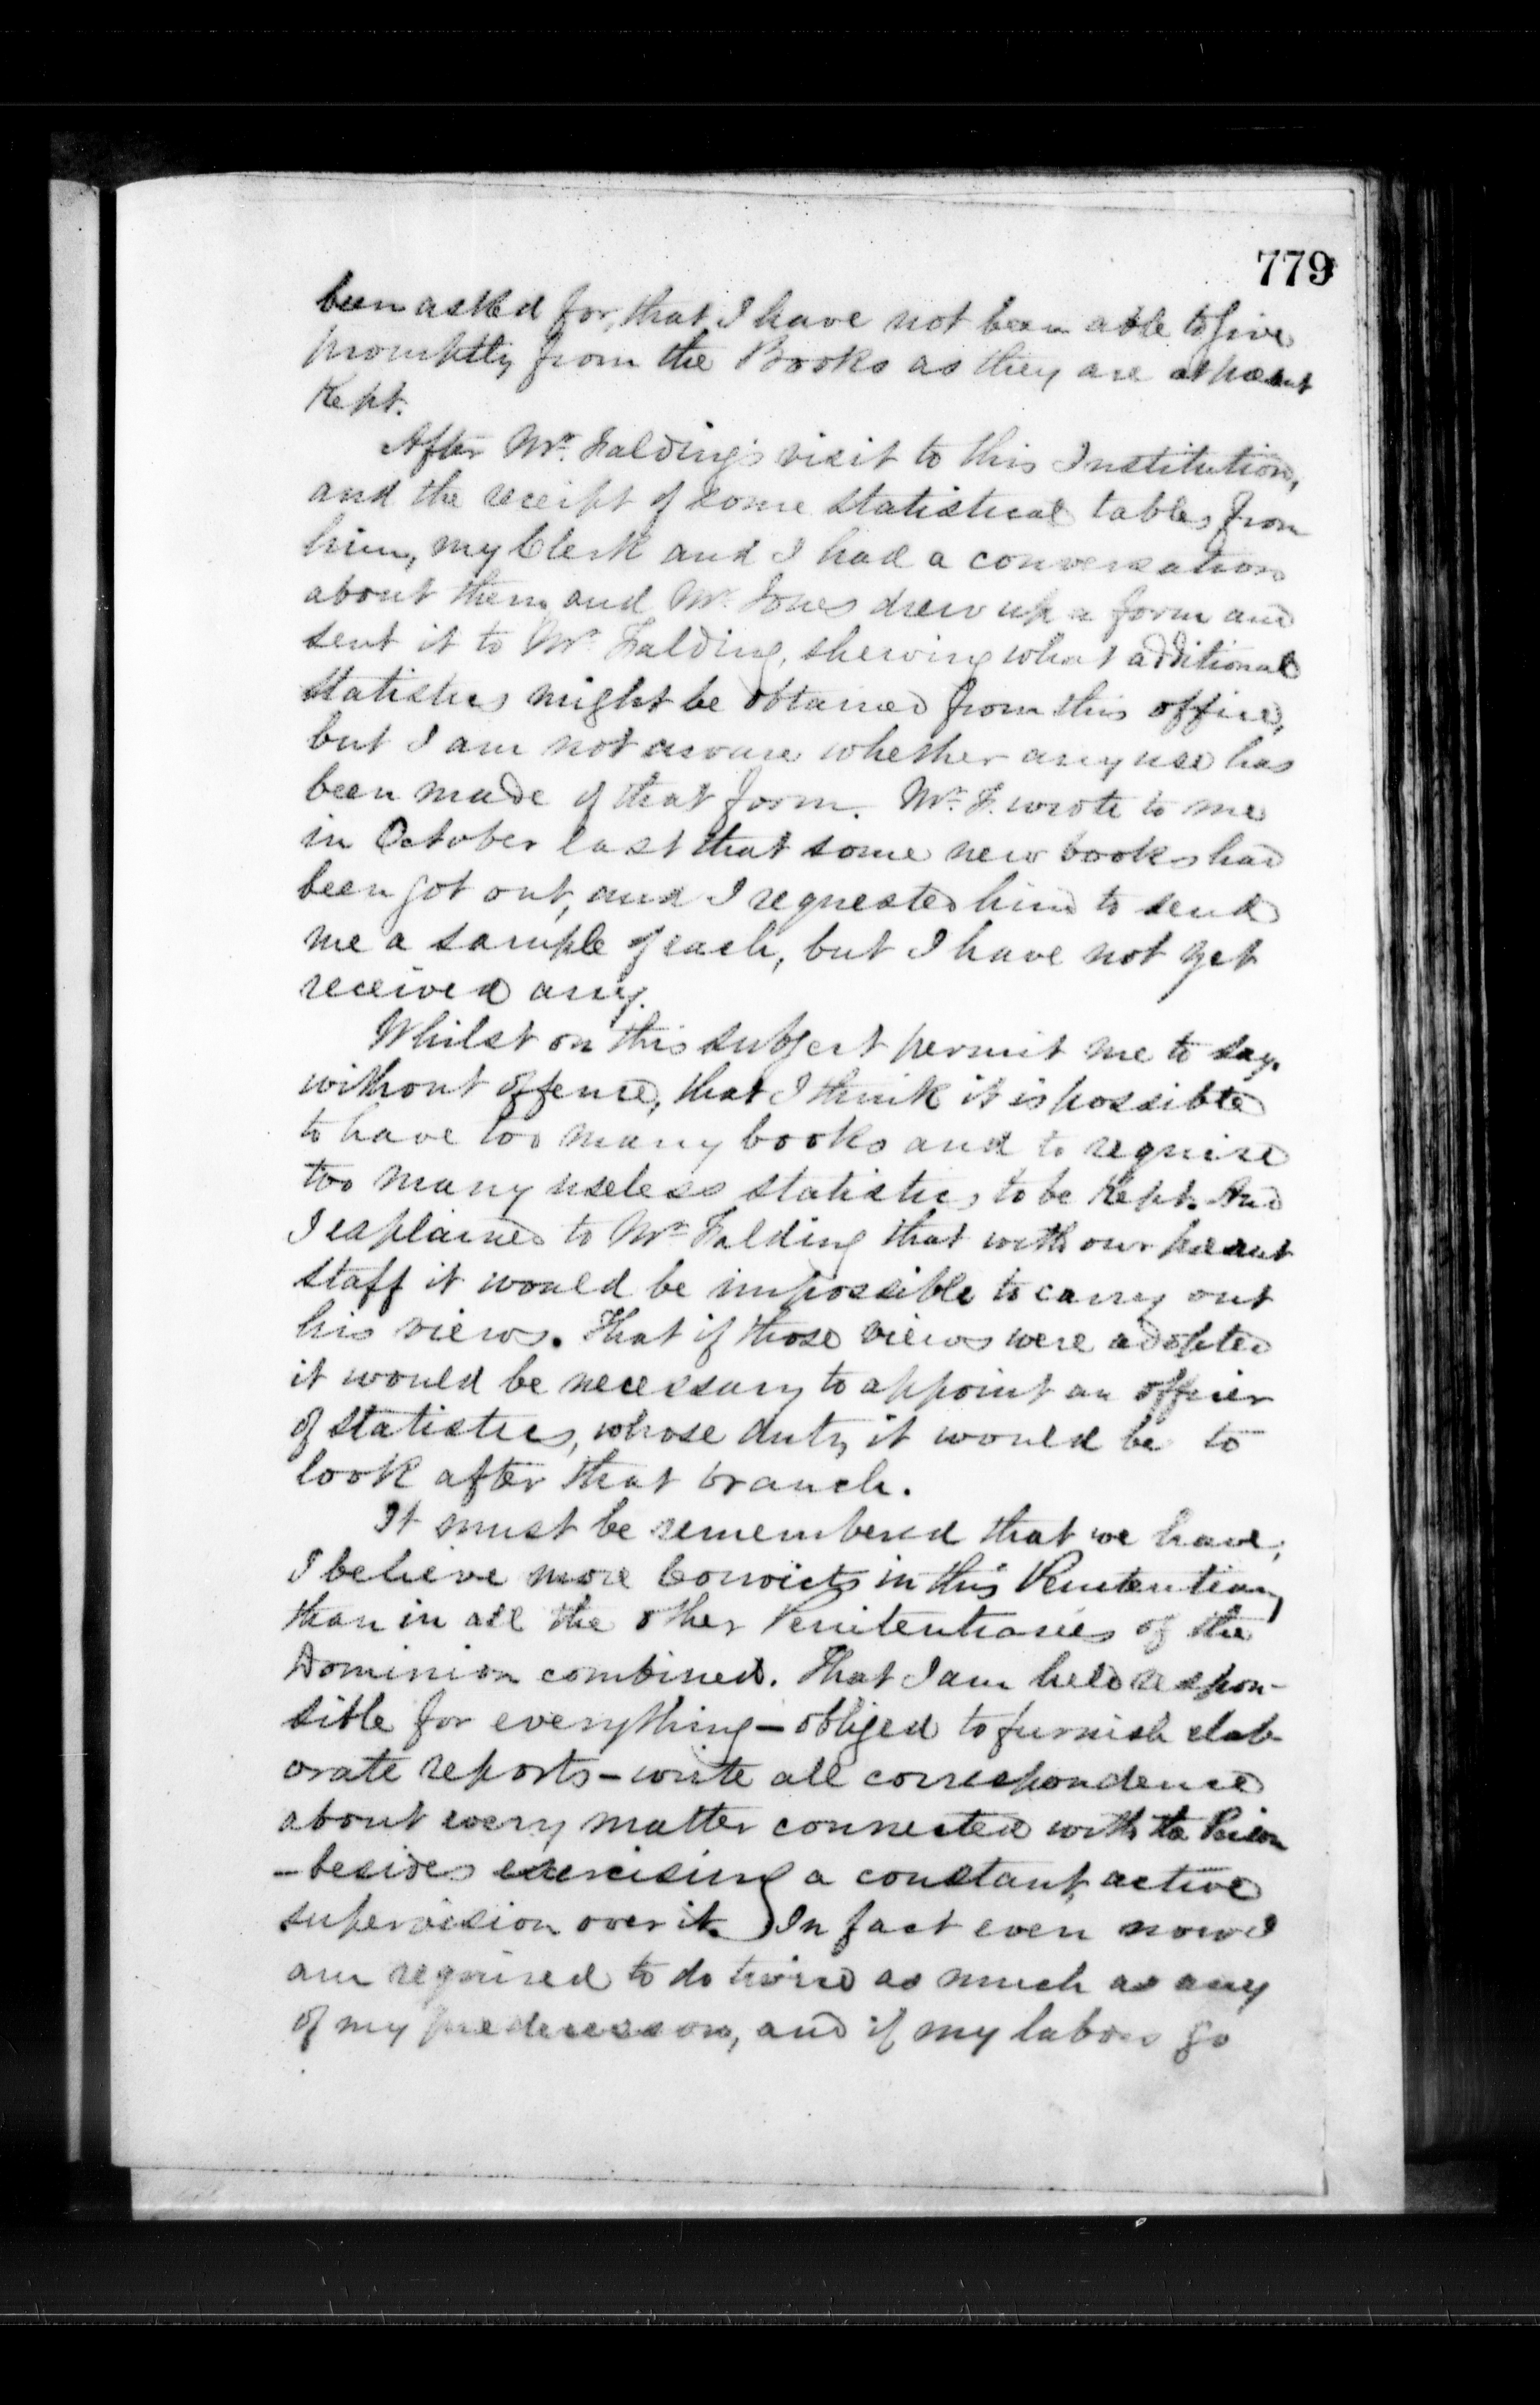 779
been asked for, that I have not been able to give
promptly from the Books as they are at present
Kept.
After Mr. Falding's visit to this Institution,
and the receipt of some statistical tables from
him, my Clerk and I had a conversation
about them and Mr. Jones drew up a form and
sent it to Mr. Falding, shewing what additional
statistics might be obtained from this office,
but I am not aware whether any use has
been made of that form. Mr. F. wrote to me
in October last that some new books had
been got out, and I requested him to send
me a sample of each, but I have not yet
received any.
Whilst on this subject permit me to say,
without offence, that I think it is possible
to have too many books and to require
too many useless statistics to be Kept. And
I explained to Mr. Falding that with our present
staff it would be impossible to carry out
his views. That if those views were adopted
it would be necessary to appoint an officer
of statistics, whose duty it would be to
look after that branch.
It must be remembered that we have,
I believe more Convicts in this Penitentiary
than in all the other Penitentiaries of the
Dominion combined. That I am held respon-
sible for everything - obliged to furnish elab-
orate reports - write all correspondence
about every matter connected with the Prison
- besides exercising a constant, active
supervision over it. In fact even now I
am required to do twice as much as any
of my predecessors, and if my labors go